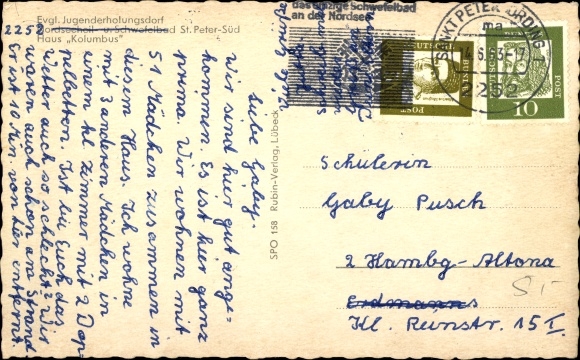 Evgl. Jugenderholungsdorf
Nordseeheil- u. Schwefelbad St. Peter-Süd
Haus „Kolumbus"
2252
Liebe Gaby.
Wir sind hier gut ange=
kommen. Es ist hier ganz
prima. Wir wohnen mit
51 Mädchen zusammen in
diesem Haus. Ich wohne
mit 3 anderen Mädchen in
einem kl Zimmer mit 2 Dop-
pelbetten. Ist bei Euch das
Wetter auch so schlecht? Wir
waren auch schon am Strand
Er ist 10 Min von hier entfernt
SPO 158 Rubin-Verlag, Lübeck
das einzige Schwefelbad
an der Nordsee
SANKT PETER-ORDING
2252
DEUTSCHE
BUNDESPOST
DEUTSCHE
BUNDESPOST
10
Schülerin
Gaby Pusch
2 Hambg-Altona
Erdmanns
Kl. Rainstr. 15 I.